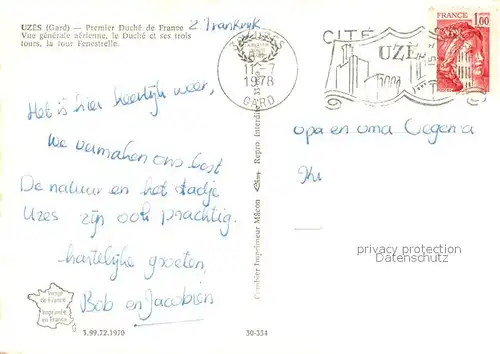 UZES (Gard) — Premier Duché de France
Z. Frankrijk
Vue générale aérienne, le Duché et ses trois
tours, la tour Fenestrelle.
30 UZES
11-7
1978
GARD
CITÉ
UZÈ
FRANCE
1,00
Het is hier heerlijk weer,
We vermaken ons best
De natuur en het stadje
Uzes zijn ook prachtig.
hartelijke groeten,
Bob en Jacobien
opa en oma
privacy protection
Datenschutz
Combier Imprimeur Mâcon
Repro. Interdite
Image de France
Imprimée en France
3.99.72.1970
30-334